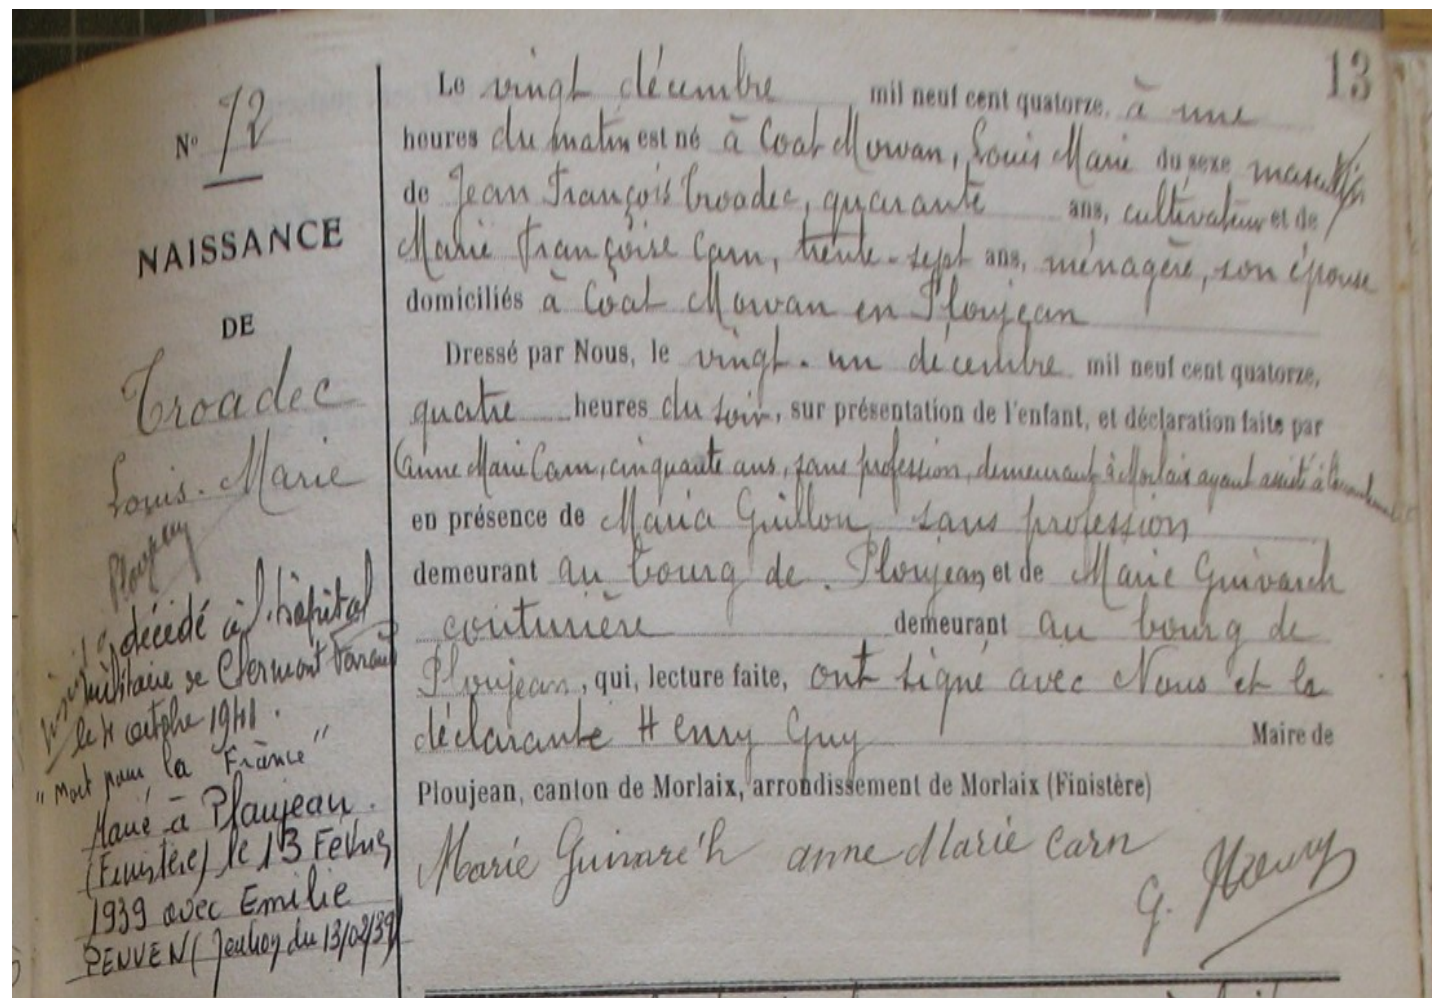 13
Nº 72
NAISSANCE
DE
Troadec
Louis. Marie
Ploujean
décédé à l'hôpital
militaire de Clermont Ferrand
le 4 octobre 1941.
"Mort pour la France"
Marié à Ploujean.
(Finistère) le 13 Février
1939 avec Emilie
PENVEN ( du 13/02/39)
Le vingt décembre mil neuf cent quatorze, à une
heures du matin est né à Coat Mowan, Louis Marie du sexe masculin
de Jean François Troadec, quarante ans, cultivateur et de
Marie Françoise Carn, trente-sept ans, ménagère, son épouse
domiciliés à Coat Mowan en Ploujean
Dressé par Nous, le vingt-un décembre mil neuf cent quatorze,
quatre heures du soir, sur présentation de l'enfant, et déclaration faite par
Anne Marie Carn, cinquante ans, sans profession, demeurant à Morlaix ayant assisté à l'accouchement
en présence de Maria Guillou, sans profession
demeurant au bourg de Ploujean, et de Marie Guivarch
couturière demeurant au bourg de
Ploujean, qui, lecture faite, ont signé avec Nous et la
déclarante Henry Guy Maire de
Ploujean, canton de Morlaix, arrondissement de Morlaix (Finistère)
Marie Guivarc'h anne Marie Carn
G. Henry